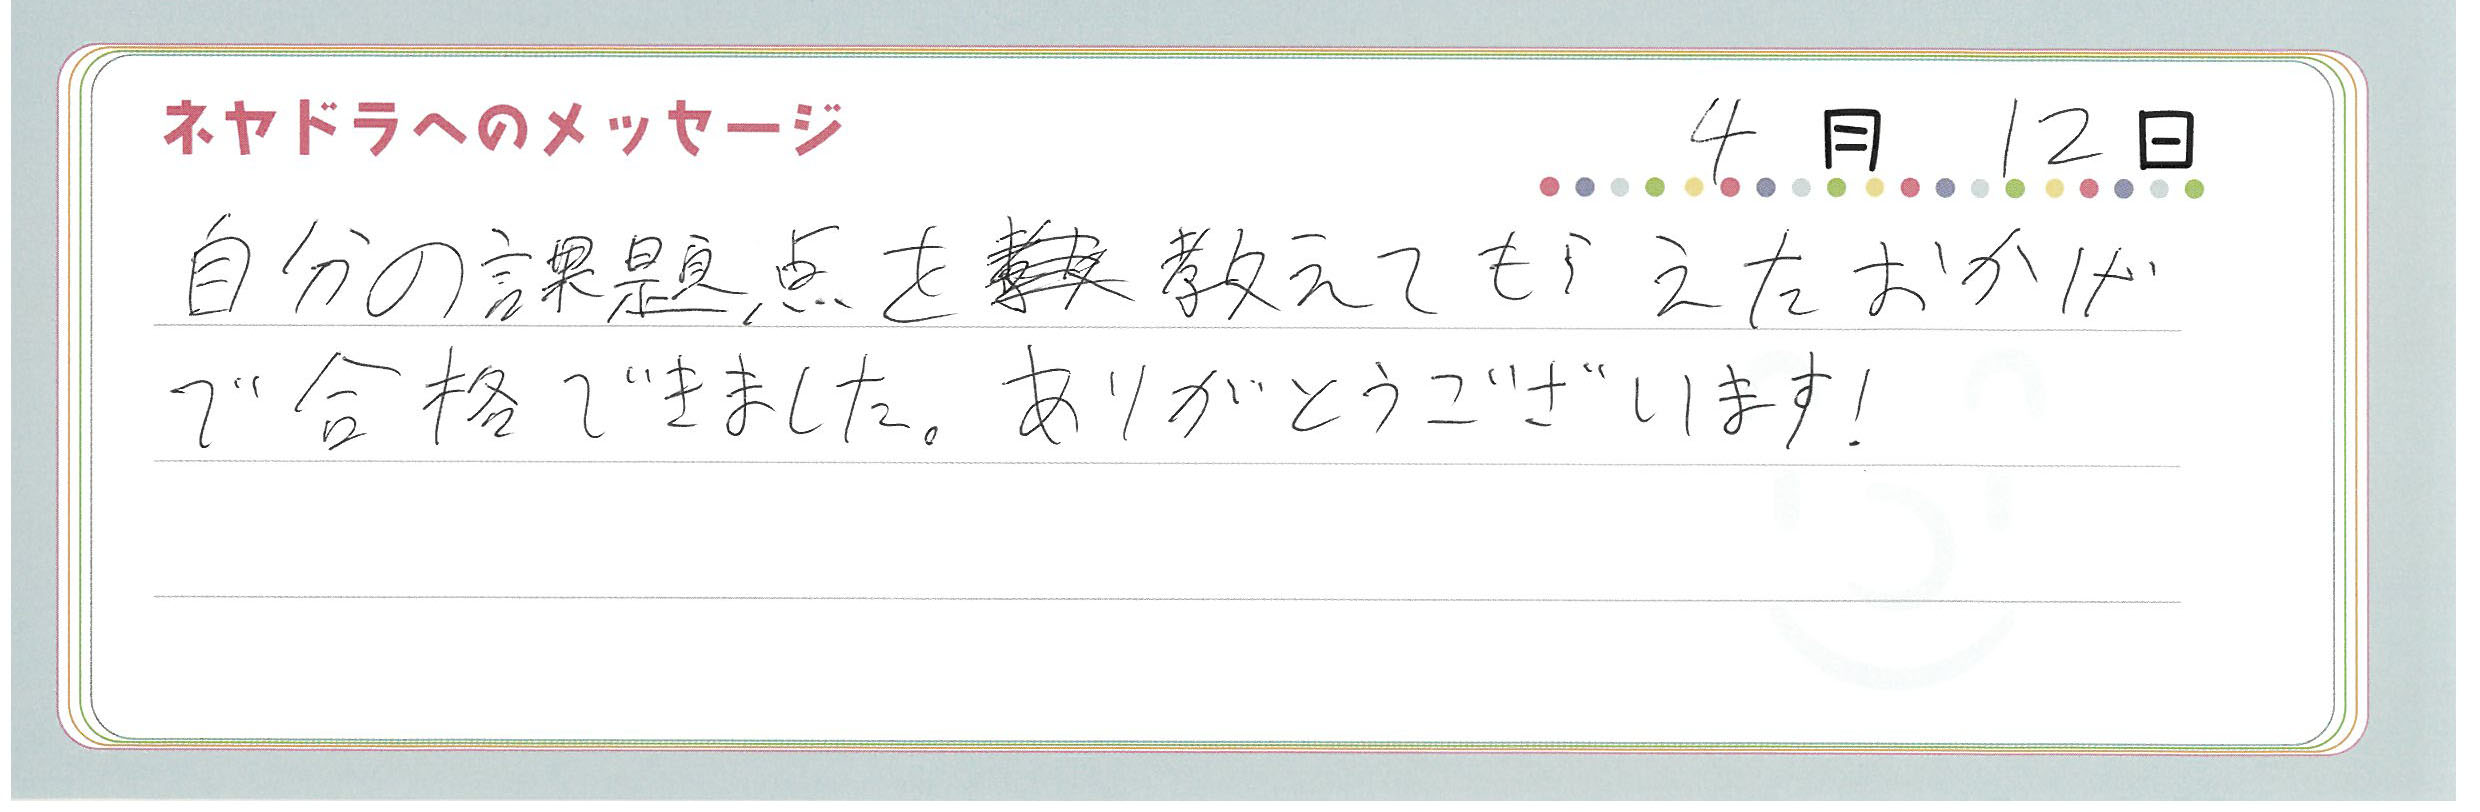 ネヤドラへのメッセージ
4月12日
自分の課題点を教えてもらえたおかげ
で合格できました。ありがとうございます!